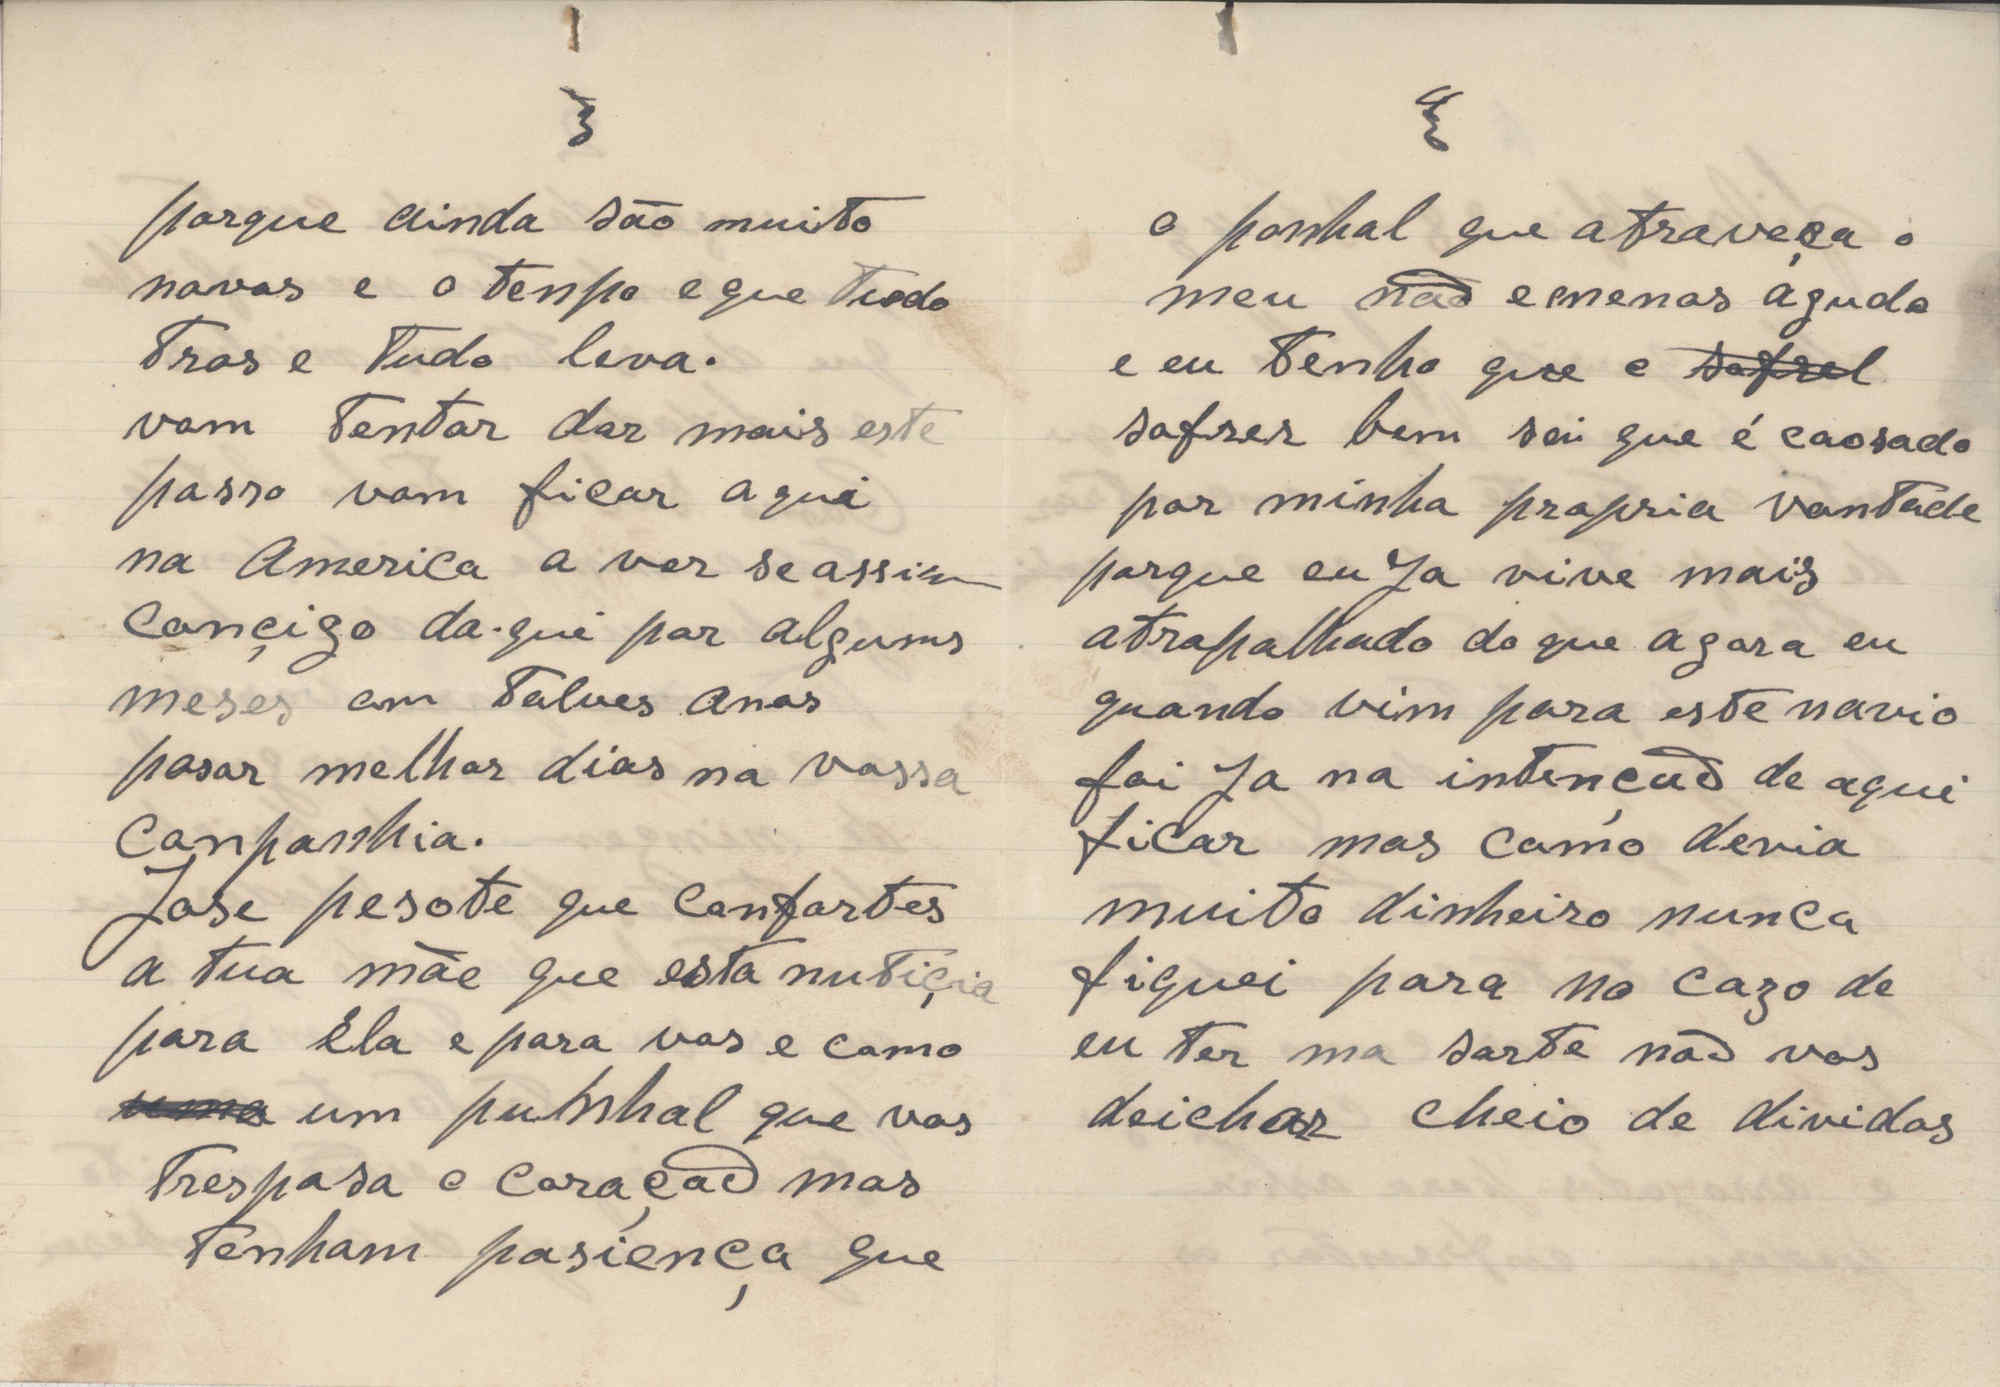 3
porque ainda são muito
novos e o tenpo e que tuodo
tras e tudo leva.
vom tentar dar mais este
passo vom ficar aqui
na America a ver se assim
conçigo da-qui por algums
meses om talves anos
pasar melhor dias na vossa
conpanhia.
Jose pesote que confortes
a tua mãe que esta nutiçia
para Ela e para vos e como
uma um punhal que vos
trespasa o coraçaõ mas
tenham pasiença que
o ponhal que atraveça o
meu naõ e menos águdo
e eu tenho que o sofrel
sofrer bem sei que é caosado
por minha propria vontade
porque eu Ja vive mais
atrapalhado do que agora eu
quando vim para este navio
foi Ja na intençaõ de aqui
ficar mas como devia
muito dinheiro nunca
fiquei para no cazo de
eu ter ma sorte naõ vos
deichar cheio de dividas